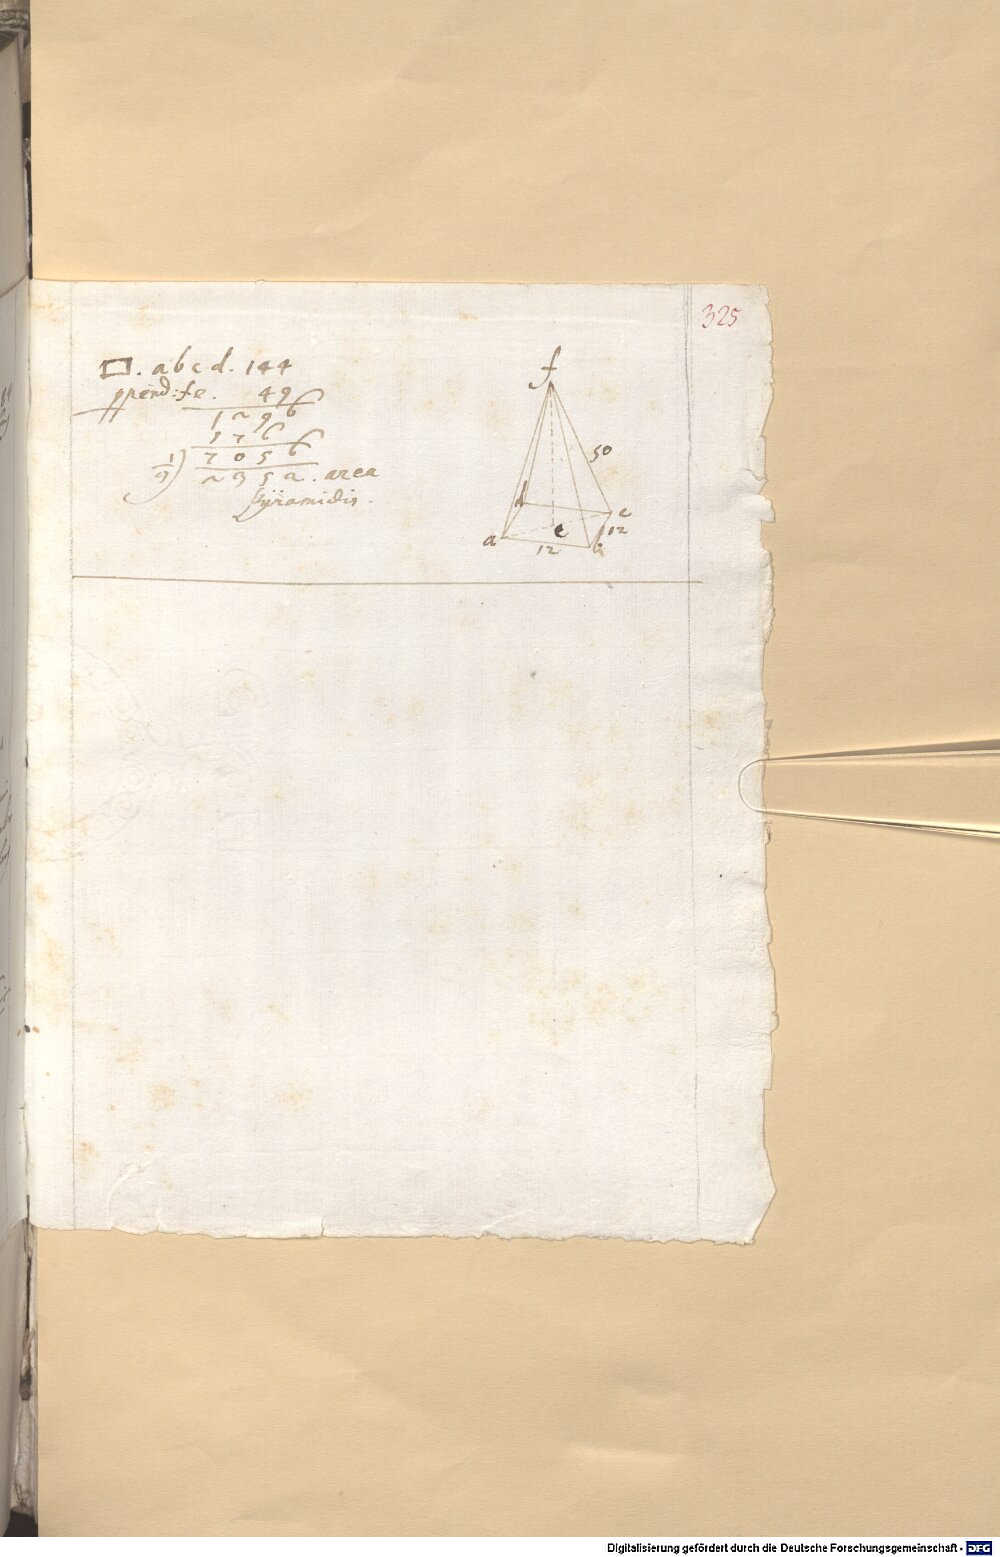 325
□. abcd. 144
ppend: fe. 49
1296
576
7056
1/3) 2352. area
pyramidis.
f
50
d
c
e
12
a
12
b
Digitalisierung gefördert durch die Deutsche Forschungsgemeinschaft - DFG